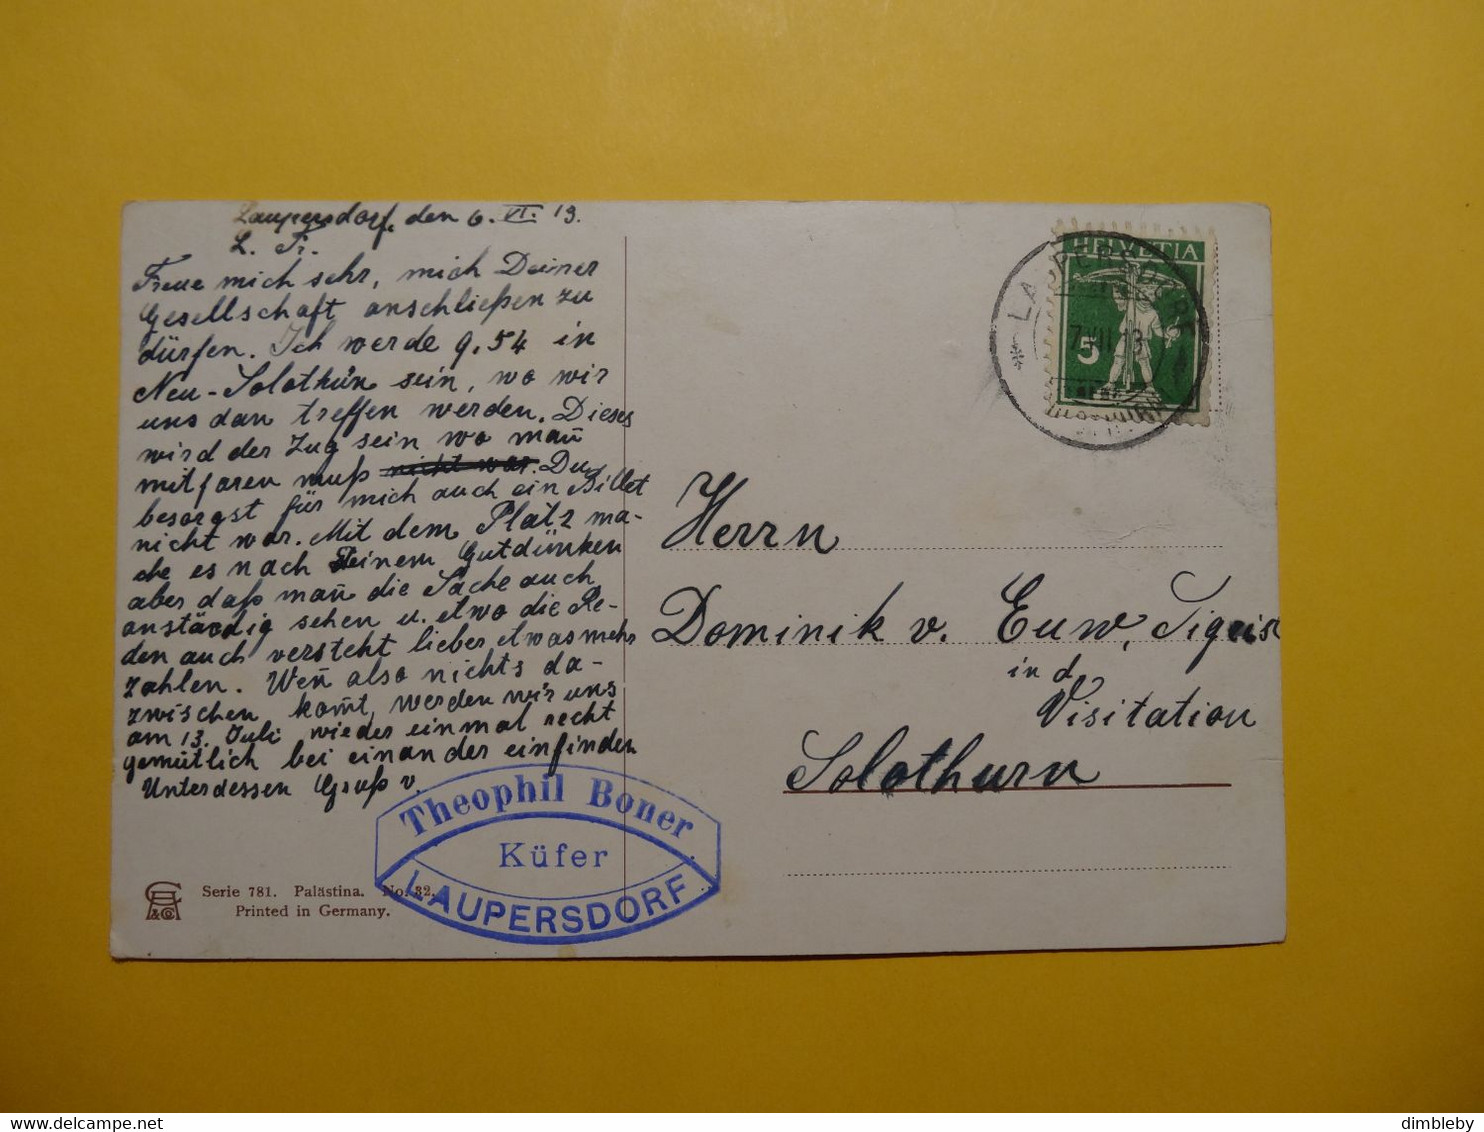 Laupersdorf, den 6. VI. 13.
L. Fr.
Freue mich sehr, mich Deiner
Gesellschaft anschließen zu
dürfen. Ich werde 9.54 in
Neu-Solothurn sein, wo wir
uns dan treffen werden. Dieses
wird der Zug sein wo man̄
mitfaren muß nicht war. Du
besorgst für mich auch ein Billet
nicht war. Mit dem Platz ma-
che es nach Deinem Gutdünken
aber daß man̄ die Sache auch
anständig sehen u. etwo die Re-
den auch versteht lieber etwas mehr
zahlen. Wen̄ also nichts da-
zwischen kom̄t, werden wir uns
am 13. Juli wieder einmal recht
gemütlich bei einander einfinden
Unterdessen Gruß v.
Theophil Boner
Küfer
LAUPERSDORF
Serie 781. Palästina. No. 32.
Printed in Germany.
HELVETIA
5
LAUPERSDORF
7.VII.13
Herrn
Dominik v. Euw, Sigrist
in d.
Visitation
Solothurn
www.delcampe.net
dimbleby